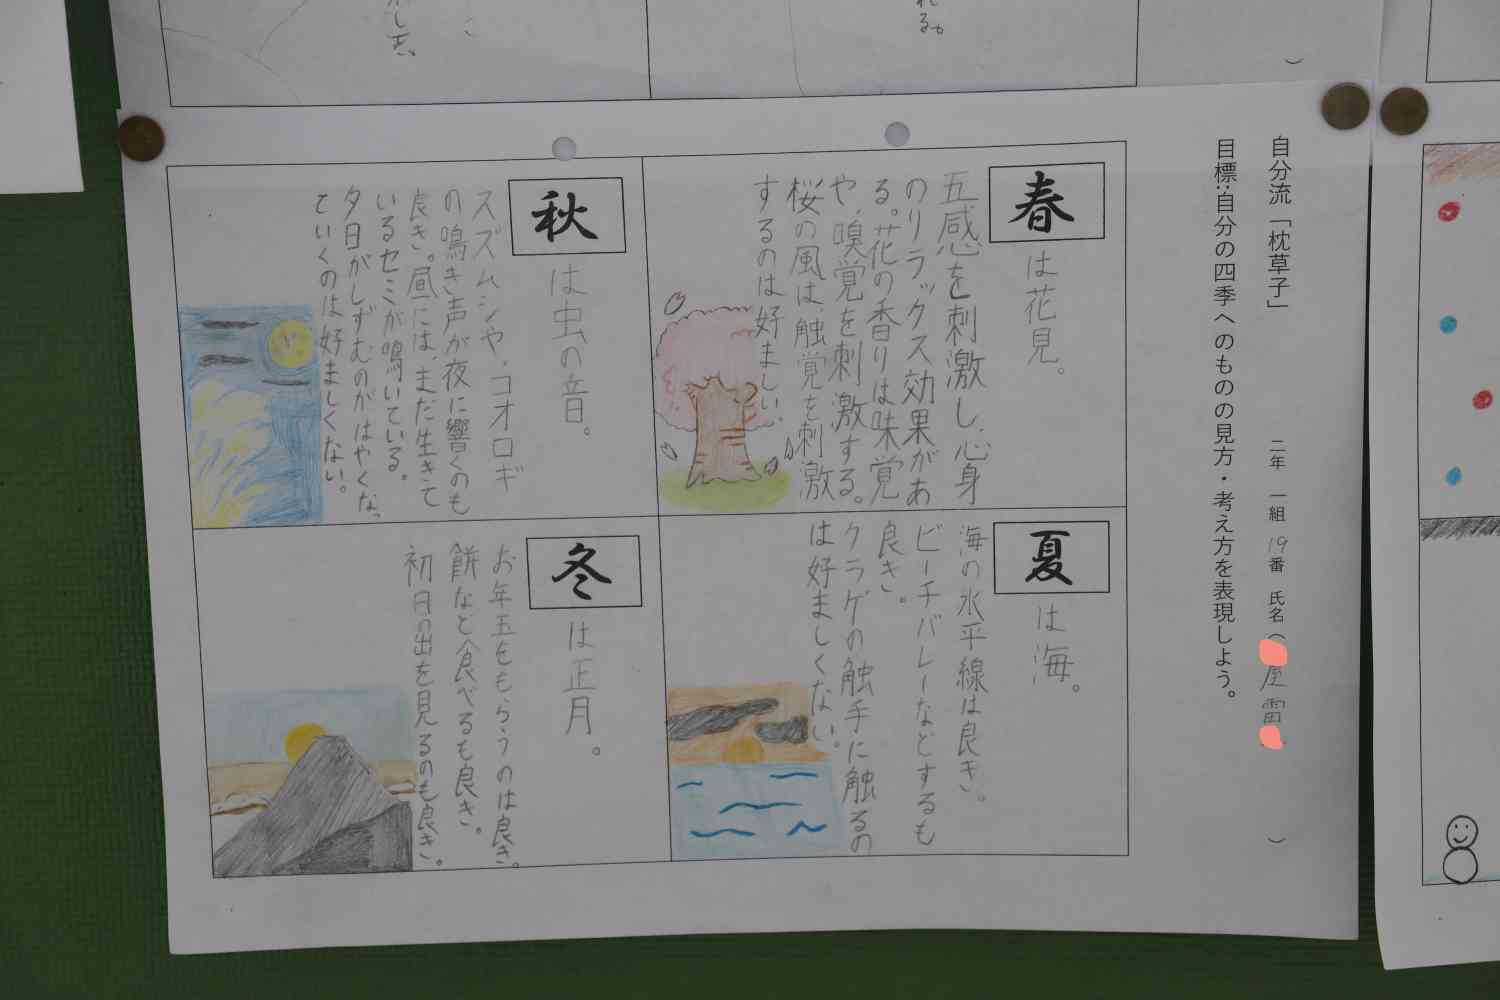 自分流「枕草子」
二年 一組 19番 氏名（ 屋 雷 ）
目標：自分の四季へのものの見方・考え方を表現しよう。
春は花見。
五感を刺激し、心身
のリラックス効果があ
る。花の香りは味覚
や、嗅覚を刺激する。
桜の風は、触覚を刺激
するのは好ましい。
夏は海。
海の水平線は良き。
ビーチバレーなどするも
良き。
クラゲの触手に触るの
は好ましくない。
秋は虫の音。
スズムシや、コオロギ
の鳴き声が夜に響くのも
良き。昼にはまだ生きて
いるセミが鳴いている。
夕日がしずむのがはやくなっ
ていくのは好ましくない。
冬は正月。
お年玉をもらうのは良き。
餅など食べるも良き。
初日の出を見るのも良き。